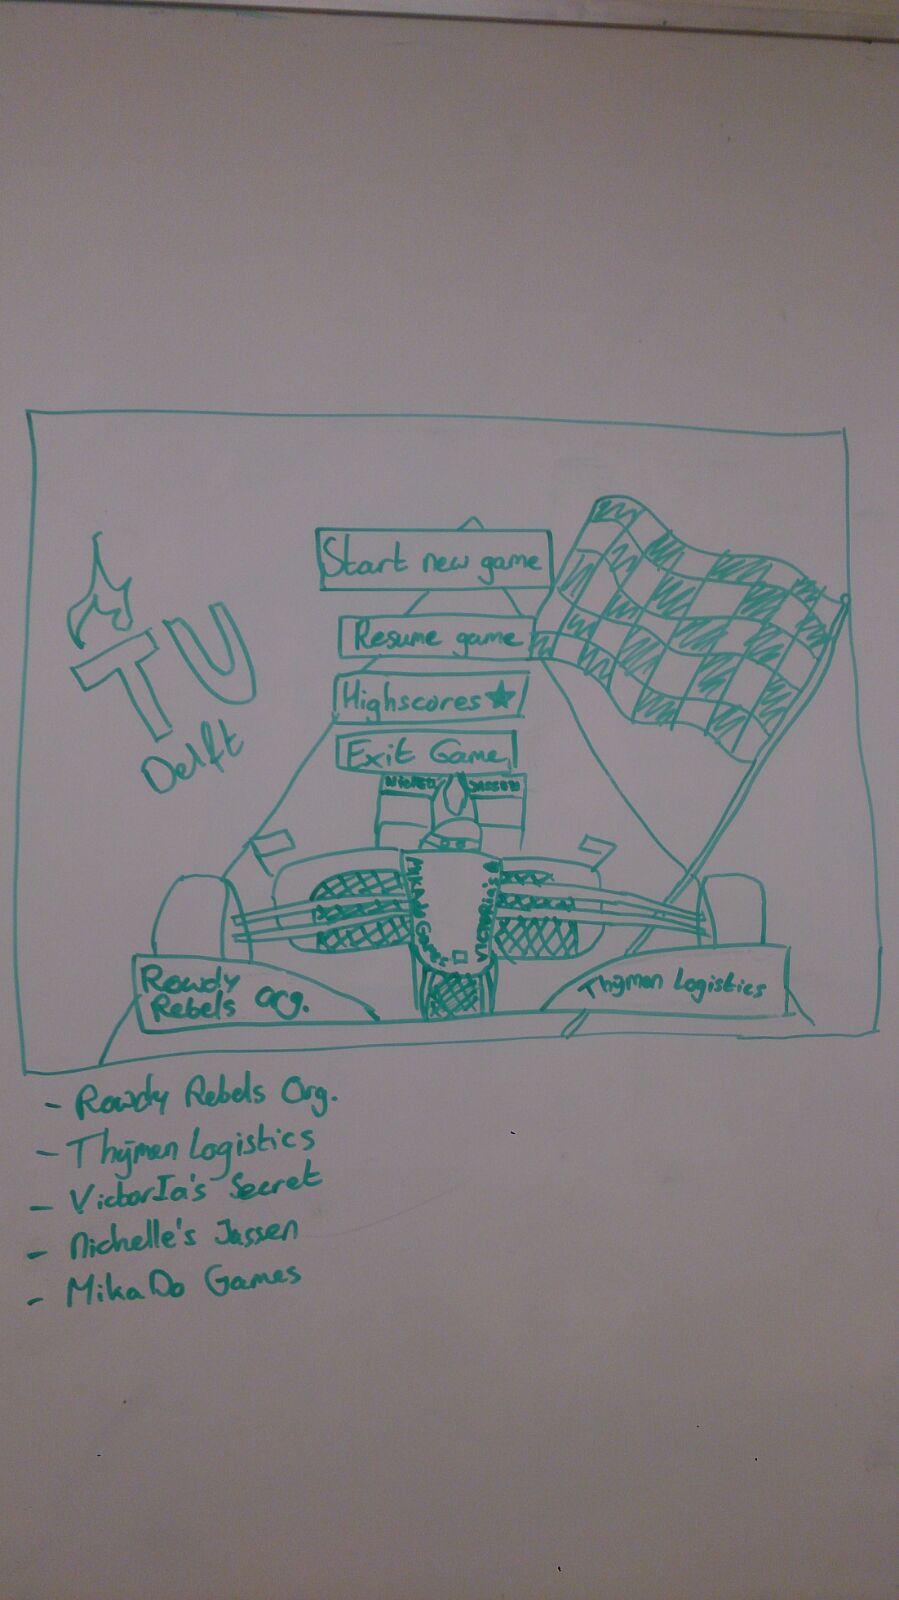 Start new game
Resume game
Highscores
Exit Game
TU
Delft
Rowdy
Rebels Org.
Thymen Logistics
- Rowdy Rebels Org.
- Thymen Logistics
- VictorIa's Secret
- Nichelle's Jassen
- MikaDo Games